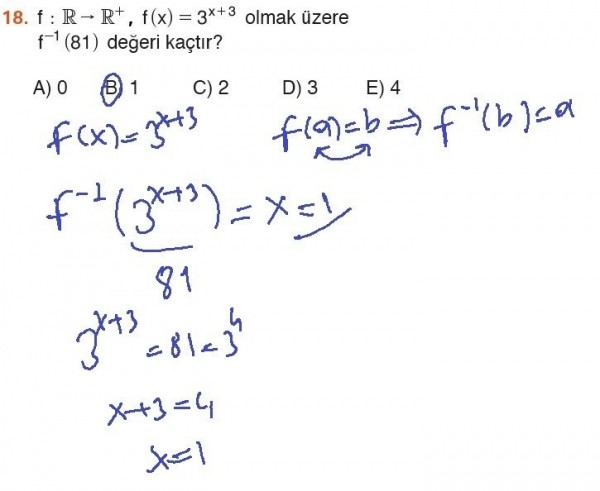 18. f : ℝ → ℝ⁺, f(x) = 3ˣ⁺³ olmak üzere
f⁻¹(81) değeri kaçtır?
A) 0 B) 1 C) 2 D) 3 E) 4
f(x) = 3ˣ⁺³ f(a) = b ⇒ f⁻¹(b) = a
f⁻¹(3ˣ⁺³) = x = 1
81
3ˣ⁺³ = 81 = 3⁴
x+3 = 4
x = 1